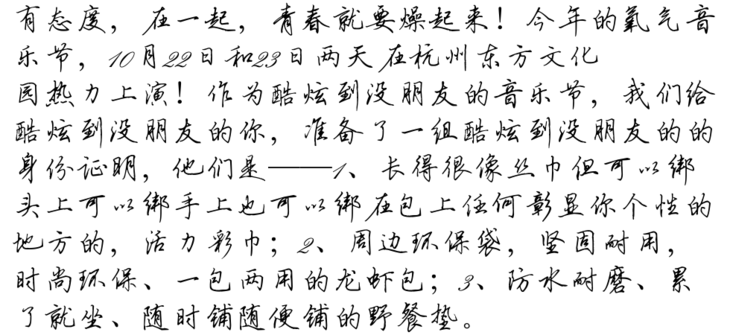 有态度，在一起，青春就要燥起来！今年的氧气音
乐节，10月22日和23日两天在杭州东方文化
园热力上演！作为酷炫到没朋友的音乐节，我们给
酷炫到没朋友的你，准备了一组酷炫到没朋友的的
身份证明，他们是——1、长得很像丝巾但可以绑
头上可以绑手上也可以绑在包上任何彰显你个性的
地方的，活力彩巾；2、周边环保袋，坚固耐用，
时尚环保、一包两用的龙虾包；3、防水耐磨、累
了就坐、随时铺随便铺的野餐垫。